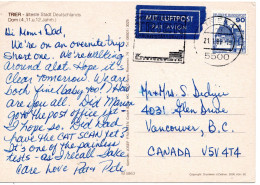 TRIER - älteste Stadt Deutschlands
Dom (4., 11. u. 12. Jahrh.)
Hi Mom & Dad,
We're on an overnite trip
Short one. We're walking
around alot. Hope it's
clear tomorrow. We are
both fine/busy too! How
are you all. Did
go to the post office yet
I hope so. Did Dad
have the CAT SCAN yet?
It's one of the painless
tests - as I recall. Take
care love Pam Pete
MIT LUFTPOST
PAR AVION
5500
90
Mr & Mrs S
4031 Glen Drive
Vancouver, B.C.
CANADA V5V 4T4